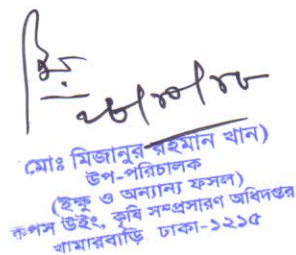 মোঃ মিজানুর রহমান খান)
উপ-পরিচালক
(ইক্ষু ও অন্যান্য ফসল)
ক্রপস উইং, কৃষি সম্প্রসারণ অধিদপ্তর
খামারবাড়ি ঢাকা-১২১৫